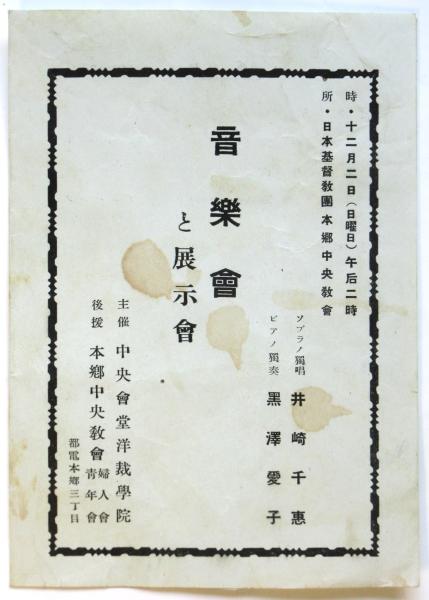 時・十二月二日(日曜日)午后二時
所・日本基督敎團本鄕中央敎會
ソプラノ獨唱 井崎千惠
ピアノ獨奏 黑澤愛子
音樂會
と展示會
主催 中央會堂洋裁學院
後援 本鄕中央敎會 婦人會
青年會
都電本鄕三丁目